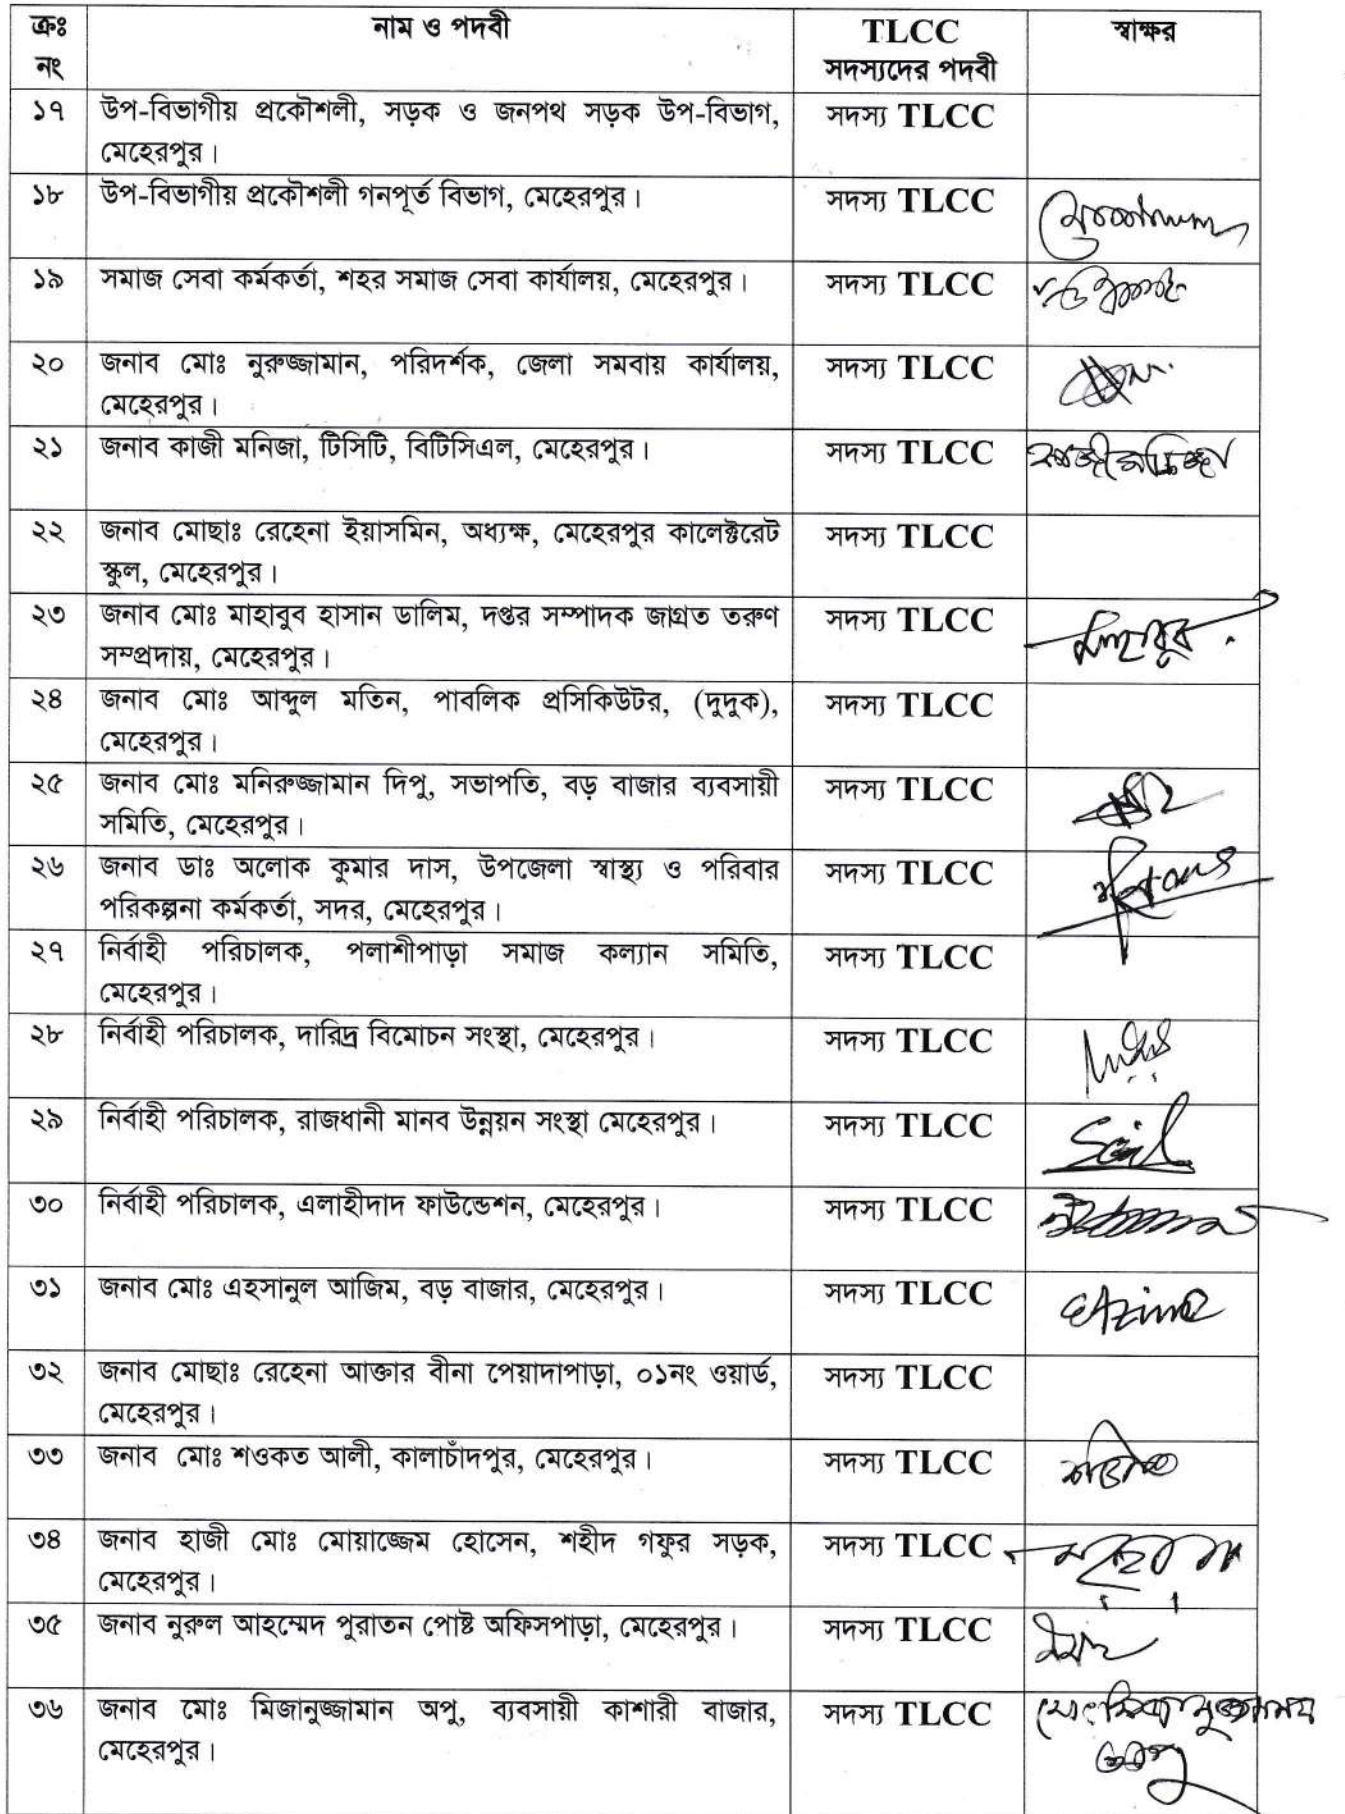 ক্রঃ নং | নাম ও পদবী | TLCC সদস্যদের পদবী | স্বাক্ষর
১৭ উপ-বিভাগীয় প্রকৌশলী, সড়ক ও জনপথ সড়ক উপ-বিভাগ, সদস্য TLCC
মেহেরপুর।
১৮ উপ-বিভাগীয় প্রকৌশলী গনপূর্ত বিভাগ, মেহেরপুর। সদস্য TLCC
১৯ সমাজ সেবা কর্মকর্তা, শহর সমাজ সেবা কার্যালয়, মেহেরপুর। সদস্য TLCC
২০ জনাব মোঃ নুরুজ্জামান, পরিদর্শক, জেলা সমবায় কার্যালয়, সদস্য TLCC
মেহেরপুর।
২১ জনাব কাজী মনিজা, টিসিটি, বিটিসিএল, মেহেরপুর। সদস্য TLCC
২২ জনাব মোছাঃ রেহেনা ইয়াসমিন, অধ্যক্ষ, মেহেরপুর কালেক্টরেট সদস্য TLCC
স্কুল, মেহেরপুর।
২৩ জনাব মোঃ মাহাবুব হাসান ডালিম, দপ্তর সম্পাদক জাগ্রত তরুণ সদস্য TLCC
সম্প্রদায়, মেহেরপুর।
২৪ জনাব মোঃ আব্দুল মতিন, পাবলিক প্রসিকিউটর, (দুদুক), সদস্য TLCC
মেহেরপুর।
২৫ জনাব মোঃ মনিরুজ্জামান দিপু, সভাপতি, বড় বাজার ব্যবসায়ী সদস্য TLCC
সমিতি, মেহেরপুর।
২৬ জনাব ডাঃ অলোক কুমার দাস, উপজেলা স্বাস্থ্য ও পরিবার সদস্য TLCC
পরিকল্পনা কর্মকর্তা, সদর, মেহেরপুর।
২৭ নির্বাহী পরিচালক, পলাশীপাড়া সমাজ কল্যান সমিতি, সদস্য TLCC
মেহেরপুর।
২৮ নির্বাহী পরিচালক, দারিদ্র বিমোচন সংস্থা, মেহেরপুর। সদস্য TLCC
২৯ নির্বাহী পরিচালক, রাজধানী মানব উন্নয়ন সংস্থা মেহেরপুর। সদস্য TLCC
৩০ নির্বাহী পরিচালক, এলাহীদাদ ফাউন্ডেশন, মেহেরপুর। সদস্য TLCC
৩১ জনাব মোঃ এহসানুল আজিম, বড় বাজার, মেহেরপুর। সদস্য TLCC
৩২ জনাব মোছাঃ রেহেনা আক্তার বীনা পেয়াদাপাড়া, ০১নং ওয়ার্ড, সদস্য TLCC
মেহেরপুর।
৩৩ জনাব মোঃ শওকত আলী, কালাচাঁদপুর, মেহেরপুর। সদস্য TLCC
৩৪ জনাব হাজী মোঃ মোয়াজ্জেম হোসেন, শহীদ গফুর সড়ক, সদস্য TLCC
মেহেরপুর।
৩৫ জনাব নুরুল আহম্মেদ পুরাতন পোষ্ট অফিসপাড়া, মেহেরপুর। সদস্য TLCC
৩৬ জনাব মোঃ মিজানুজ্জামান অপু, ব্যবসায়ী কাশারী বাজার, সদস্য TLCC
মেহেরপুর।